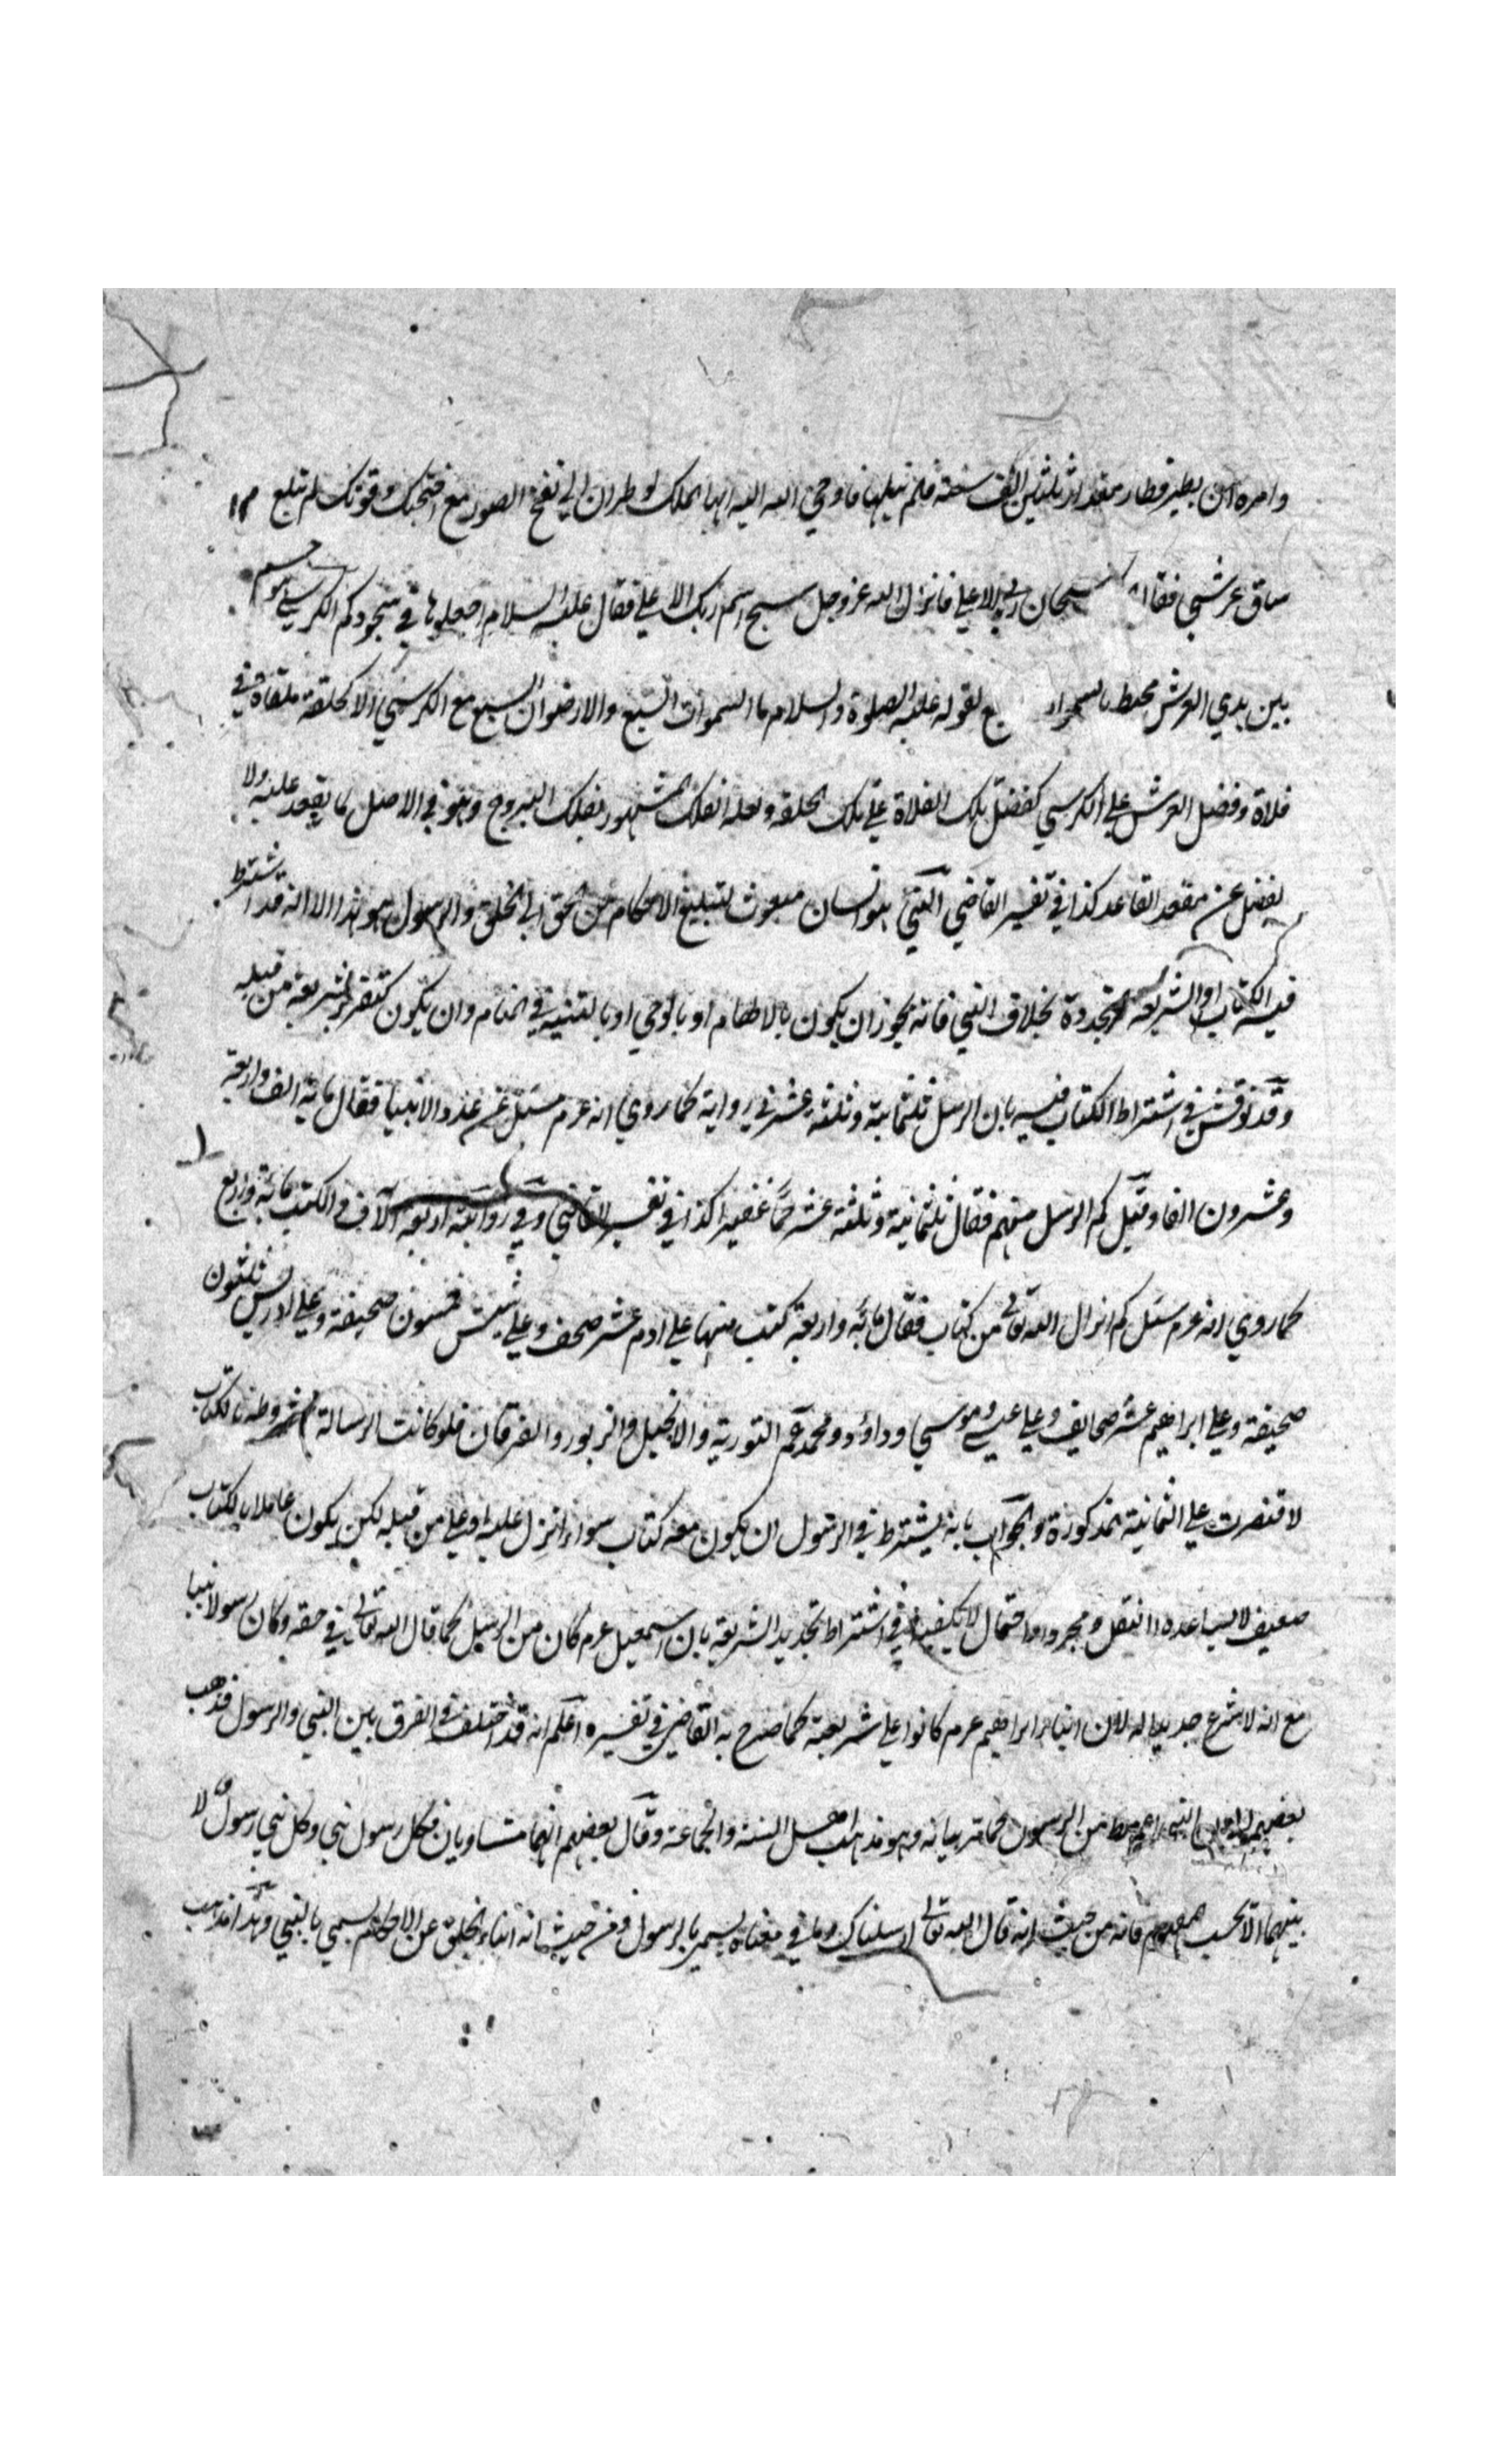 وامره ان يطير فطار مقدار ثلثين الف سنة فلم يبلها فاوحي الله اليه ايها الملك لو طرت الي نفخ الصور مع اجنحتك وقوتك لم تبلغ
ساق عرشي فقال سبحان ربي الاعلي فانزل الله عز وجل سبح اسم ربك الاعلي فقال عليه السلام اجعلوها في سجودكم الكرسي هو جسم
بين يدي العرش محيط بالسموات السبع لقوله عليه الصلوة والسلام ما السموات السبع والارضون السبع مع الكرسي الا كحلقة ملقاة في
فلاة وفضل العرش علي الكرسي كفضل تلك الفلاة علي تلك الحلقة ولعله الفلك المشهور بفلك البروج وهو في الاصل لما يقعد عليه ولا
يفضل عن مقعد القاعد كذا في تفسير القاضي النبي هو انسان مبعوث لتبليغ الاحكام من الحق الي الخلق والرسول هو هذا الا انه قد اشترط
فيه الكتاب او الشريعة المتجددة بخلاف النبي فانه يجوز ان يكون بالالهام او بالوحي او بالتنبيه في المنام وان يكون كتقرير شريعة من قبله
وقد نوقش في اشتراط الكتاب فيه بان الرسل ثلثمائة وثلثة عشر في رواية كما روي انه عرم سئل عن عدد الانبيا فقال مائة الف واربعة
وعشرون الفا وقيل كم الرسل منهم فقال ثلثمائة وثلثة عشر جما غفيرا كذا في تفسير القاضي وفي رواية اربعة آلاف والكتب مائة واربع
كما روي انه عرم سئل كم انزل الله تعالي من كتاب فقال مائة واربعة كتب منها علي ادم عشر صحف وعلي شيث خمسون صحيفة وعلي ادريس ثلثون
صحيفة وعلي ابراهيم عشر صحايف وعلي عيسي وموسي وداؤد ومحمد عم التورية والانجيل والزبور والفرقان فلو كانت الرسالة مشروطة بالكتاب
لاقتصرت علي الثمانية المذكورة والجواب بانه يشترط في الرسول ان يكون معه كتاب سواء انزل عليه او علي من قبله لكن يكون عاملا بالكتاب
ضعيف لا يساعده النقل ومجرد الاحتمال لا يكفي في اشتراط تجديد الشريعة بان اسمعيل عرم كان من الرسل كما قال الله تعالي في حقه وكان رسولا نبيا
مع انه لا شرع جديدا له لان ابناء ابراهيم عرم كانوا علي شريعته كما صرح به القاضي في تفسيره اعلم انه قد اختلف في الفرق بين النبي والرسول فذهب
بعضهم الي ان النبي اعم من الرسول كما مر بيانه وهو مذهب اهل السنة والجماعة وقال بعضهم انهما متساويان فكل رسول نبي وكل نبي رسول ولا
بينهما الا بحسب المفهوم فانه من حيث انه قال الله تعالي ارسلناك وما في معناه يسمي بالرسول ومن حيث انه انباء الخلق عن الاحكام يسمي بالنبي وهذا مذهب